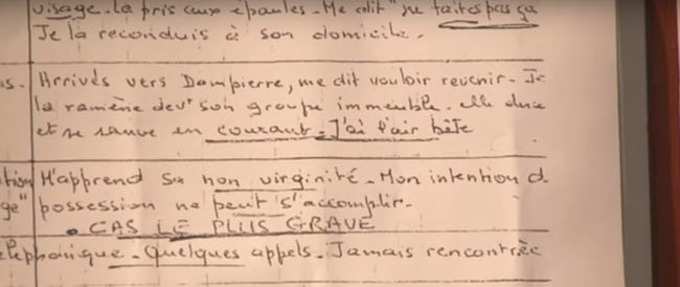 visage. La pris aux épaules. Me dit "ne faites pas ça
Je la reconduis à son domicile.
s. Arrivés vers Dampierre, me dit vouloir revenir. Je
la ramène devt son groupe immeuble. elle
et se sauve en courant. J'ai l'air bête
tion M'apprend sa non virginité. Mon intention d
ge" possession ne peut s'accomplir.
• CAS LE PLUS GRAVE
éléphonique. Quelques appels. Jamais rencontrée